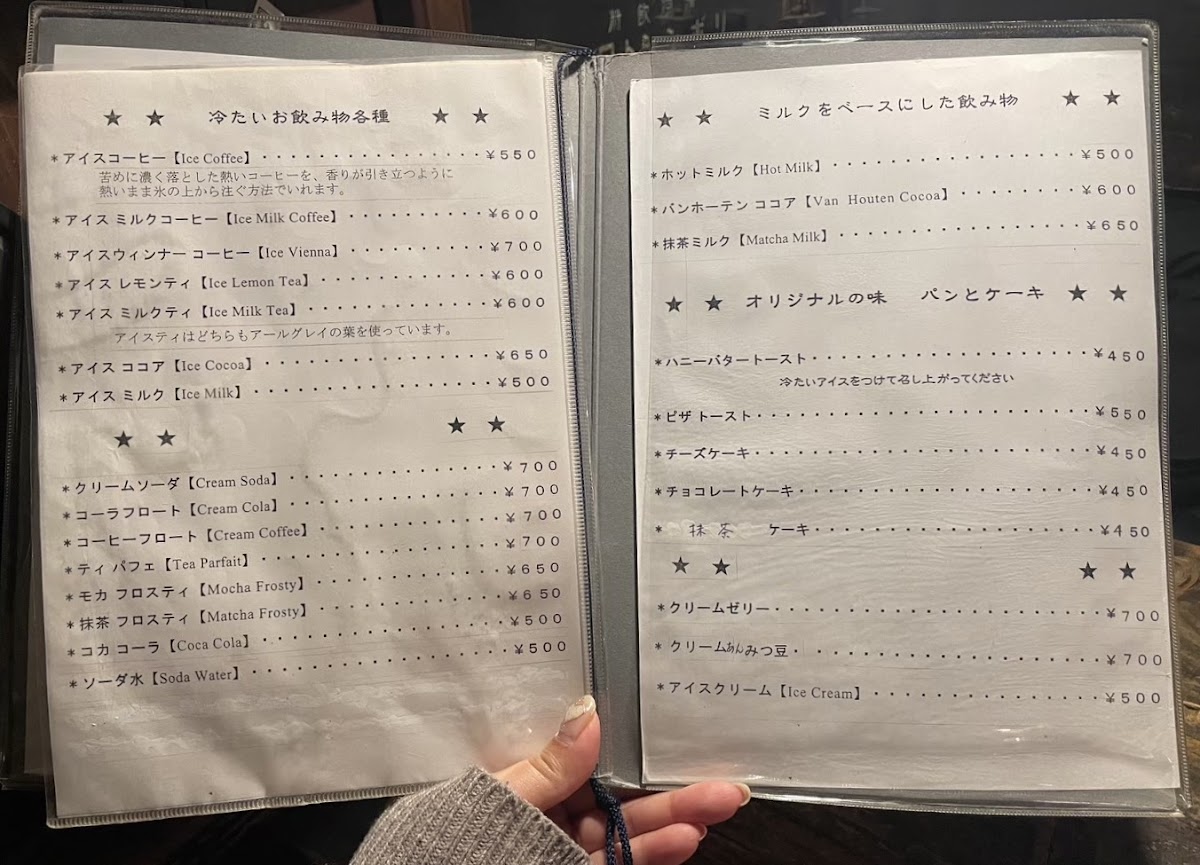 ★ ★ 冷たいお飲み物各種 ★ ★
*アイスコーヒー【Ice Coffee】・・・・・・・・・・・・・・・・¥550
苦めに濃く落とした熱いコーヒーを、香りが引き立つように
熱いまま氷の上から注ぐ方法でいれます。
*アイス ミルクコーヒー【Ice Milk Coffee】・・・・・・・・・・¥600
*アイスウィンナー コーヒー【Ice Vienna】・・・・・・・・・・¥700
*アイス レモンティ【Ice Lemon Tea】・・・・・・・・・・・・¥600
*アイス ミルクティ【Ice Milk Tea】・・・・・・・・・・・・・¥600
アイスティはどちらもアールグレイの葉を使っています。
*アイス ココア【Ice Cocoa】・・・・・・・・・・・・・・・・¥650
*アイス ミルク【Ice Milk】・・・・・・・・・・・・・・・・・¥500
★ ★ ★ ★
*クリームソーダ【Cream Soda】・・・・・・・・・・・・・・¥700
*コーラフロート【Cream Cola】・・・・・・・・・・・・・・¥700
*コーヒーフロート【Cream Coffee】・・・・・・・・・・・・¥700
*ティ パフェ【Tea Parfait】・・・・・・・・・・・・・・・・¥700
*モカ フロスティ【Mocha Frosty】・・・・・・・・・・・・¥650
*抹茶 フロスティ【Matcha Frosty】・・・・・・・・・・・・¥650
*コカ コーラ【Coca Cola】・・・・・・・・・・・・・・・・¥500
*ソーダ水【Soda Water】・・・・・・・・・・・・・・・・・¥500
★ ★ ミルクをベースにした飲み物 ★ ★
*ホットミルク【Hot Milk】・・・・・・・・・・・・・・・・・¥500
*バンホーテン ココア【Van Houten Cocoa】・・・・・・・・¥600
*抹茶ミルク【Matcha Milk】・・・・・・・・・・・・・・・・・¥650
★ ★ オリジナルの味 パンとケーキ ★ ★
*ハニーバタートースト・・・・・・・・・・・・・・・・・・¥450
冷たいアイスをつけて召し上がってください
*ピザ トースト・・・・・・・・・・・・・・・・・・・・・・¥550
*チーズケーキ・・・・・・・・・・・・・・・・・・・・・・¥450
*チョコレートケーキ・・・・・・・・・・・・・・・・・・・¥450
* 抹茶 ケーキ・・・・・・・・・・・・・・・・・・・・・・¥450
★ ★ ★ ★
*クリームゼリー・・・・・・・・・・・・・・・・・・・・・¥700
* クリームあんみつ豆・ ・・・・・・・・・・・・・・・・・・¥700
*アイスクリーム【Ice Cream】・・・・・・・・・・・・・・・¥500